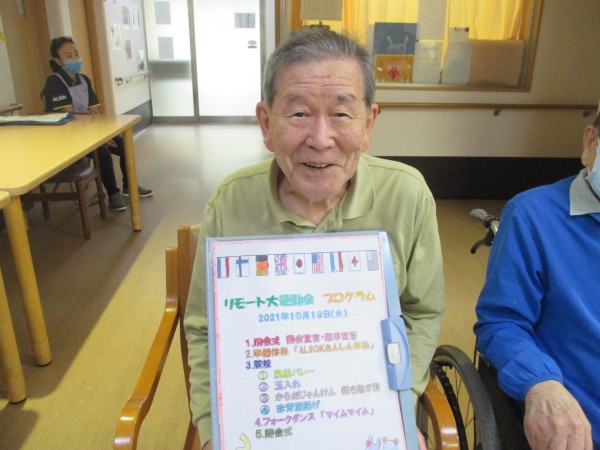 リモート大運動会 プログラム
2021年10月19日(火)
1.開会式 開会宣言・選手宣誓
2.準備体操 「ALSOKあんしん体操」
3.競技
① 風船バレー
② 玉入れ
③ からだじゃんけん 勝ち抜き戦
④
4.フォークダンス 「マイムマイム」
5.閉会式